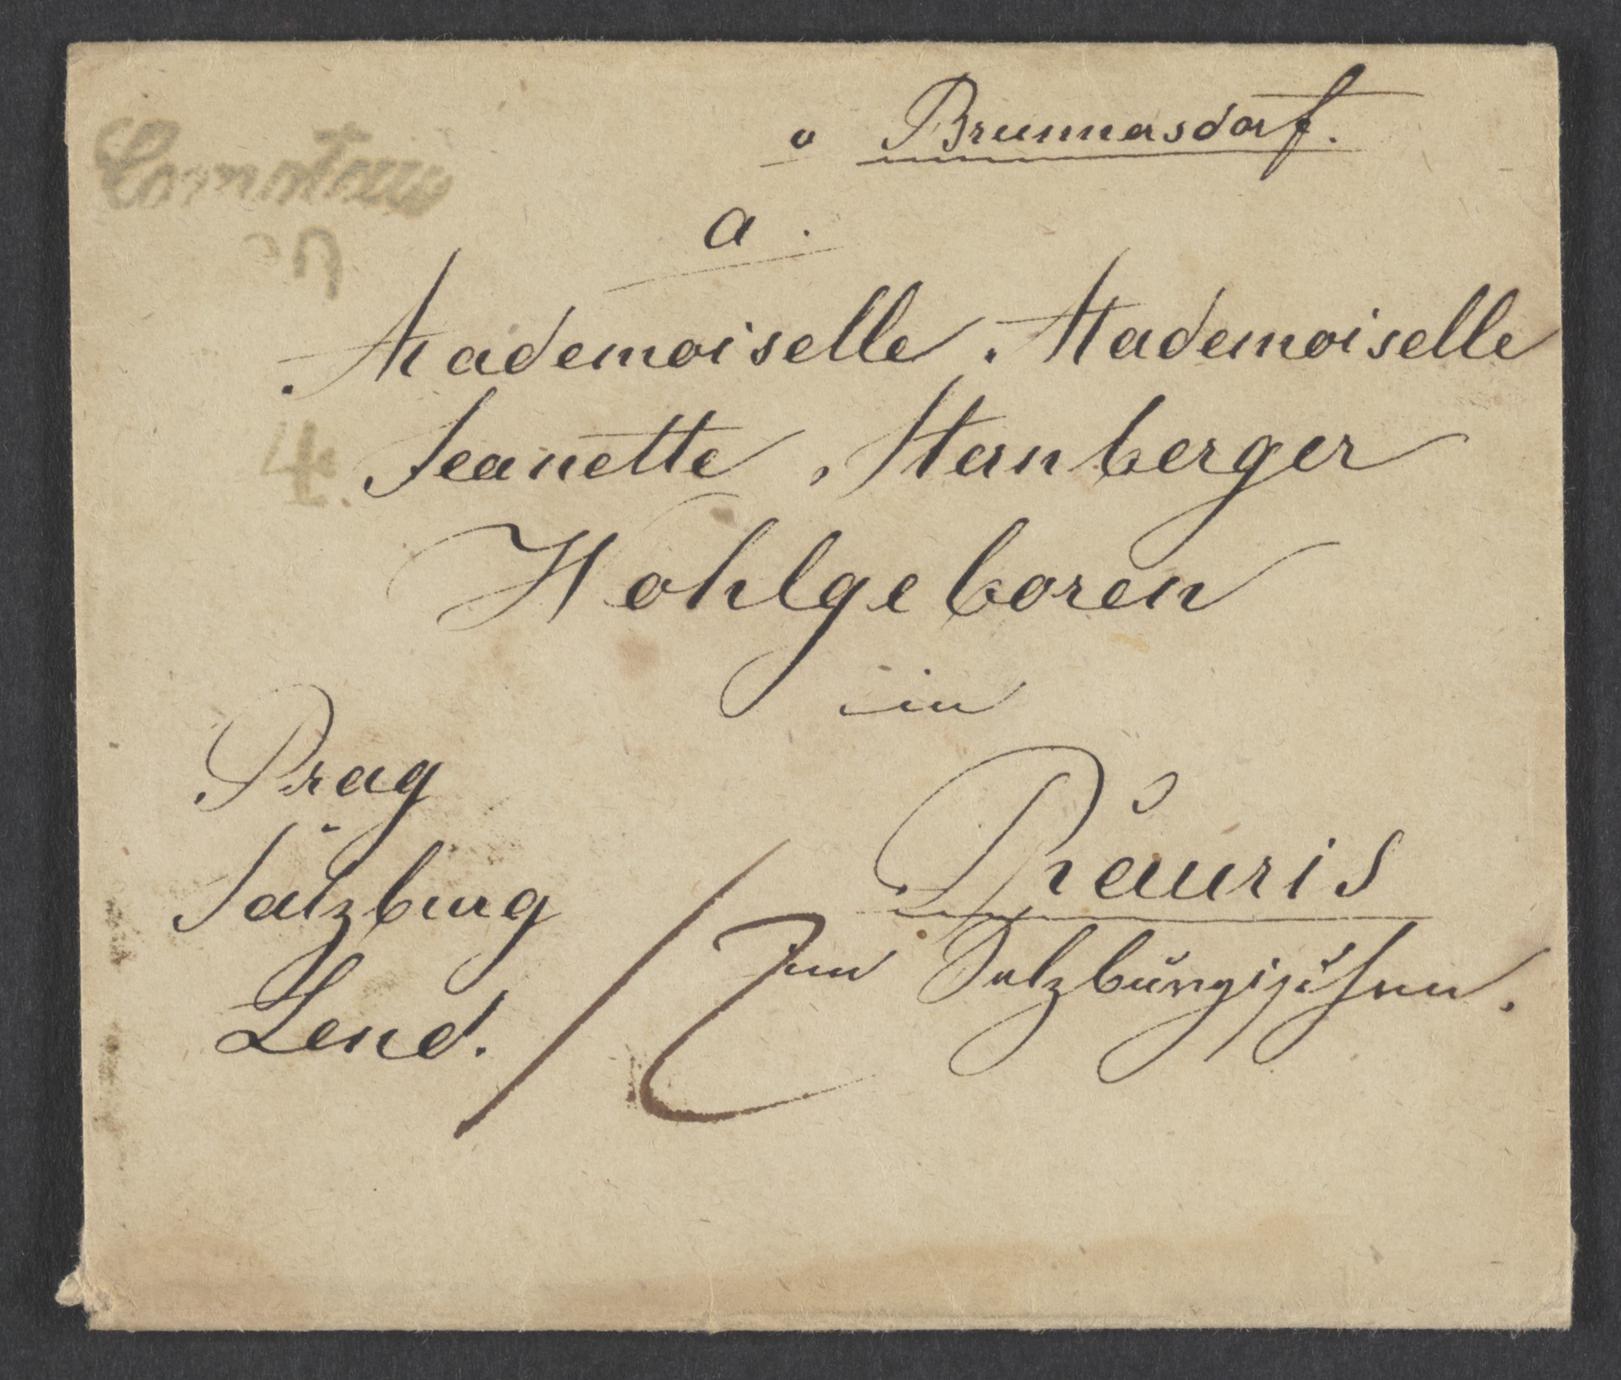 v Brunnersdorf.
Comotau
a.
Mademoiselle, Mademoiselle
4.
Jeanette, Sternberger
Wohlgeboren
in
Prag
Rauris
Salzburg
im Salzburgischen.
Lend.